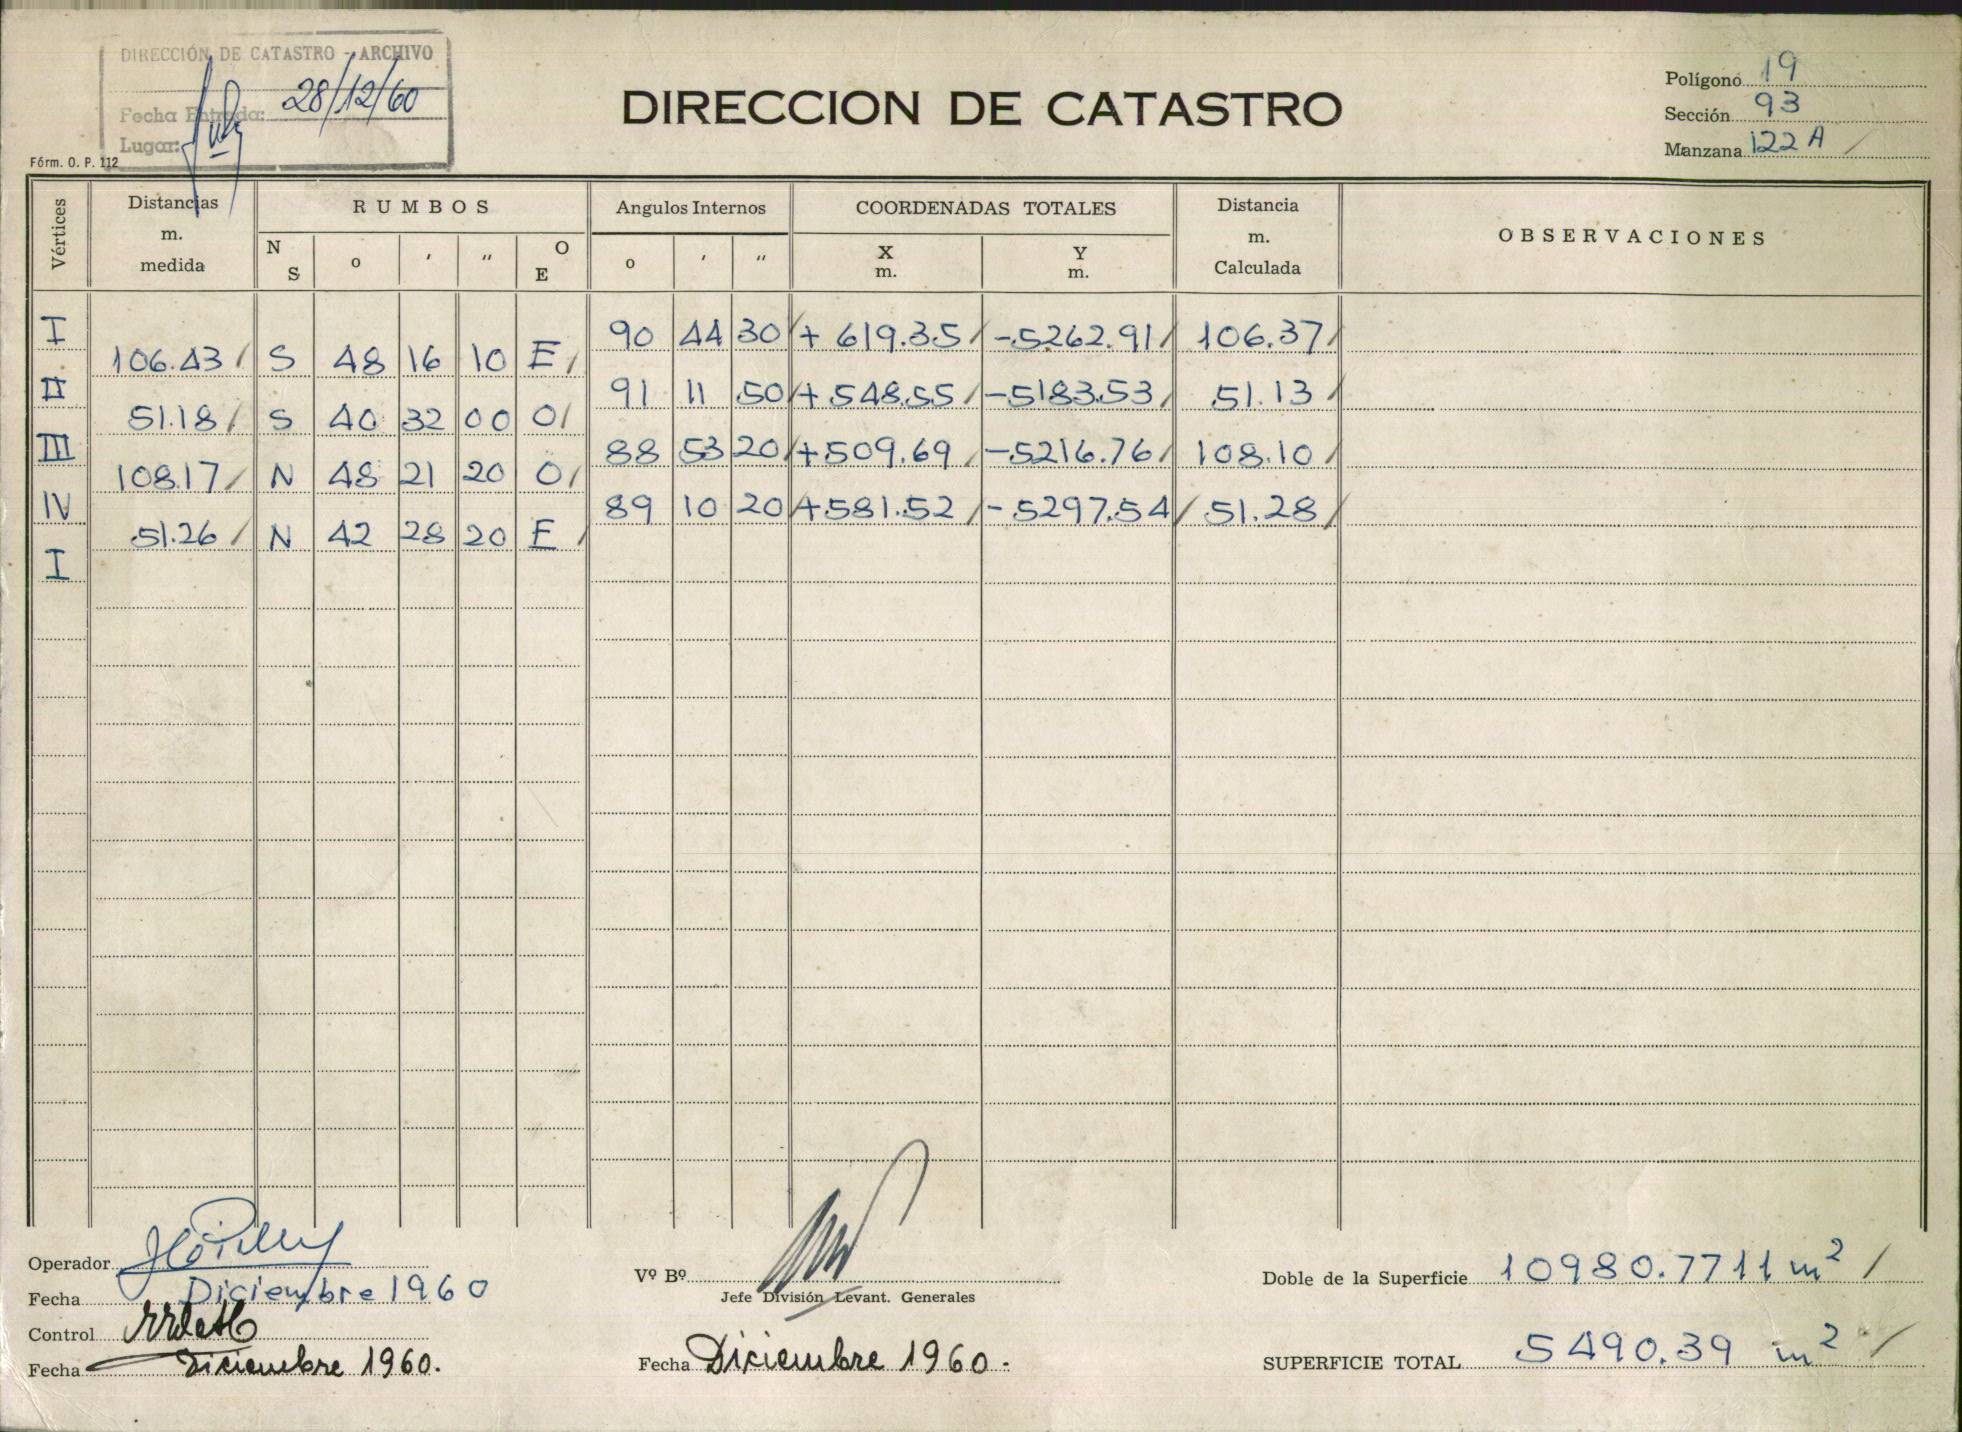 DIRECCIÓN DE CATASTRO - ARCHIVO
Fecha Entrada: 28/12/60
Lugar:
Fórm. O. P. 112
DIRECCION DE CATASTRO
Polígono 19
Sección 93
Manzana 122 A /
Vértices
Distancias m. medida
RUMBOS
N S o ′ ″ O E
Angulos Internos
o ′ ″
COORDENADAS TOTALES
X m. Y m.
Distancia m. Calculada
OBSERVACIONES
I 90 44 30 / + 619.35 / -5262.91 / 106.37 /
106.43 / S 48 16 10 E /
II 91 11 50 / + 548.55 / -5183.53 / 51.13 /
51.18 / S 40 32 00 O /
III 88 53 20 / +509.69 / -5216.76 / 108.10 /
108.17 / N 48 21 20 O /
IV 89 10 20 / +581.52 / -5297.54 / 51.28 /
51.26 / N 42 28 20 E /
I
Operador
Fecha Diciembre 1960
Control
Fecha Diciembre 1960.
Vº Bº
Jefe División Levant. Generales
Fecha Diciembre 1960.
Doble de la Superficie 10980.7711 m² /
SUPERFICIE TOTAL 5490.39 m² /